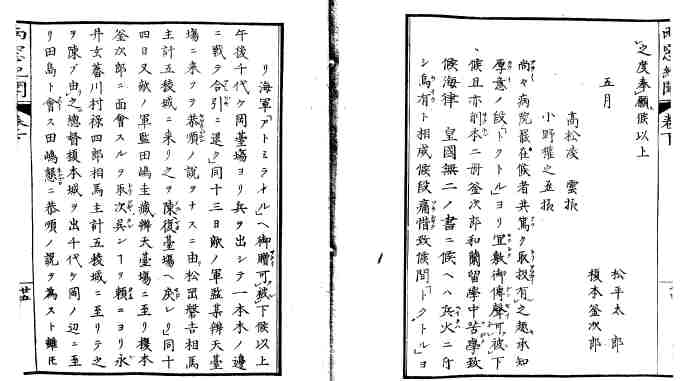 雨窓紀聞 巻下
之度奉願候以上
五月
松平太郎
榎本釜次郎
高松凌雲様
小野権之丞様
尚々病院最在候者共篤ク取扱有之趣承知
厚意ノ段「ドクトル」ヨリ宜敷御傳聲可被下
候且亦別本二冊釜次郎和蘭留學中苦學致
候海律 皇國無二ノ書ニ候ヘハ兵火ニ付
シ烏有ト相成候段痛惜致候間「ドクトル」ヨ
リ海軍「アトミラール」ヘ御贈可被下候以上
午後千代ケ岡臺塲ヨリ兵ヲ出シテ一本木ノ邊
ニ戰テ合引ニ退ク同十三日敵ノ軍監某辨天臺
塲ニ來ツテ恭順ノ説ヲナスニ由松岡磐吉相馬
主計五稜城ニ來リ之ヲ陳復臺塲ヘ戻レリ同十
四日又敵ノ軍監田嶋圭藏辨天臺塲ニ至リ榎本
釜次郎ニ面會スルヲ ヿヲ頼ニヨリ永
井玄蕃川村禄四郎相馬主計五稜城ニ至リテ之
ヲ陳ブ由之總督榎本城ヲ出千代ケ岡ノ辺ニ至
リ田島ト會ス田嶋懇ニ恭順ノ説ヲ為スト雖モ
雨窓紀聞 巻下
廿五